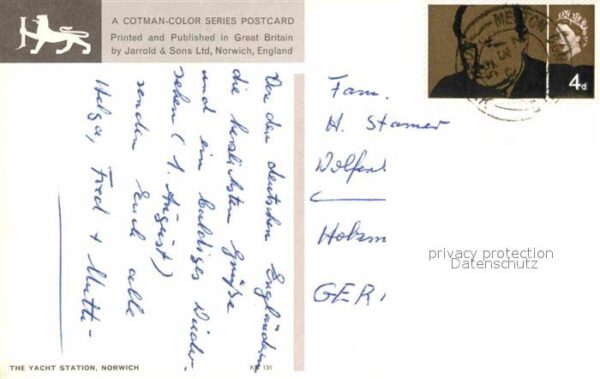 A COTMAN-COLOR SERIES POSTCARD
Printed and Published in Great Britain
by Jarrold & Sons Ltd, Norwich, England
Von den deutschen Engländern
die herzlichsten Grüße
und ein baldiges Wieder-
sehen (1. August)
senden Euch alle
Helga, Fred + Mutti-
THE YACHT STATION, NORWICH
131
4d
Fam.
H. Stamer
Wolfen
Holzm
GER
privacy protection
Datenschutz